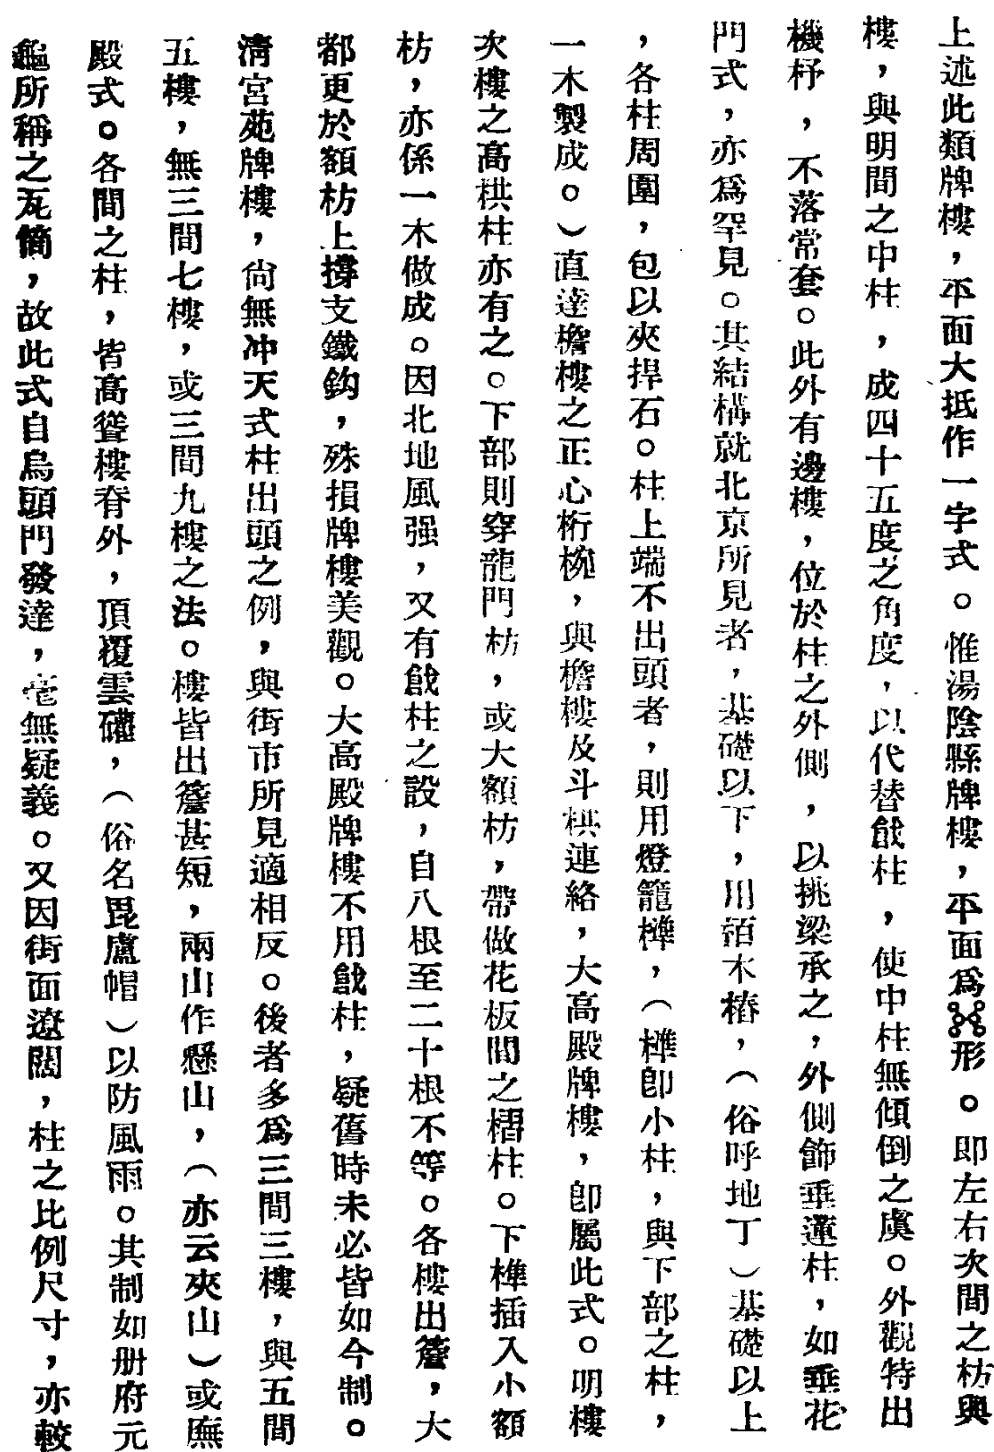 上述此類牌樓，平面大抵作一字式。惟湯陰縣牌樓，平面爲形。即左右次間之枋與
樓，與明間之中柱，成四十五度之角度，以代替戧柱，使中柱無傾倒之虞。外觀特出
機杼，不落常套。此外有邊樓，位於柱之外側，以挑梁承之，外側飾垂蓮柱，如垂花
門式，亦爲罕見。其結構就北京所見者，基礎以下，用栢木樁，（俗呼地丁）基礎以上
，各柱周圍，包以夾捍石。柱上端不出頭者，則用燈籠榫，（榫卽小柱，與下部之柱，
一木製成。）直達檐樓之正心桁椀，與檐樓及斗栱連絡，大高殿牌樓，卽屬此式。明樓
次樓之高栱柱亦有之。下部則穿龍門枋，或大額枋，帶做花板間之槢柱。下榫插入小額
枋，亦係一木做成。因北地風强，又有戧柱之設，自八根至二十根不等。各樓出簷，大
都更於額枋上撐支鐵鈎，殊損牌樓美觀。大高殿牌樓不用戧柱，疑舊時未必皆如今制。
清宮苑牌樓，尙無冲天式柱出頭之例，與街市所見適相反。後者多爲三間三樓，與五間
五樓，無三間七樓，或三間九樓之法。樓皆出簷甚短，兩山作懸山，（亦云夾山）或廡
殿式。各間之柱，皆高聳樓脊外，頂覆雲罐，（俗名毘盧帽）以防風雨。其制如册府元
龜所稱之瓦筒，故此式自烏頭門發達，毫無疑義。又因街面遼闊，柱之比例尺寸，亦較